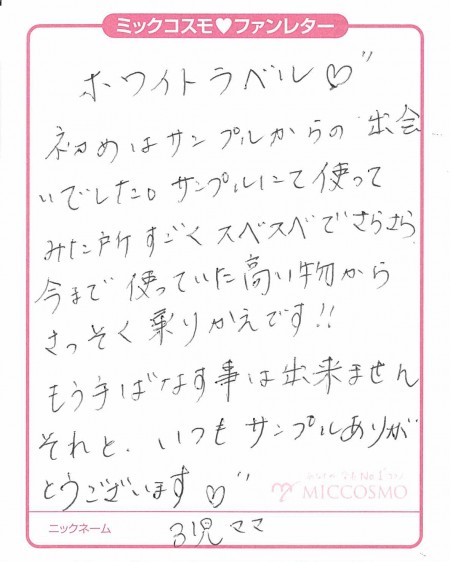 ミックコスモ♥ファンレター
ホワイトラベル♡"
初めはサンプルからの出会
いでした。サンプルにて使って
みた所すごくスベスベでさらさら
今まで使っていた高い物から
さっそく乗りかえです!!
もう手ばなす事は出来ません
それと、いつもサンプルありが
とうございます♡"
MICCOSMO
ニックネーム 3児ママ